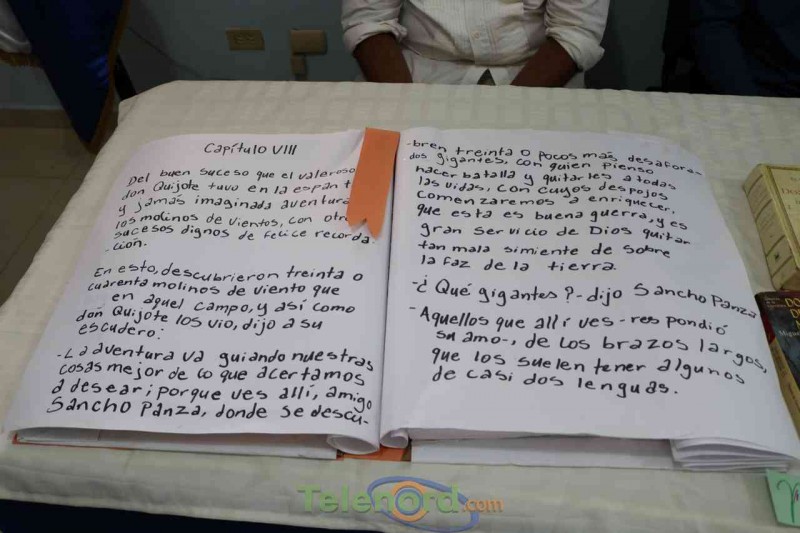 Capítulo VIII
Del buen suceso que el valeroso
don Quijote tuvo en la espan
y jamas imaginada aventura
los molinos de vientos, con otr
sucesos dignos de felice recorda
-ción.
En esto, descubrieron treinta o
cuarenta molinos de viento que
en aquel campo, y así como
don Quijote los vio, dijo a su
escudero:
-La aventura va guiando nuestras
cosas mejor de co que acertamos
a desear; porque ves allí, amigo
Sancho Panza, donde se descu-
-bren treinta o pocos más desafora-
dos gigantes, con quien pienso
hacer batalla y quitarles a todas
las vidas, con cuyos despojos
comenzaremos a enriquecer,
que esta es buena guerra, y es
gran servicio de Dios quitar
tan mala simiente de sobre
la faz de la tierra.
-¿Qué gigantes?- dijo Sancho Panza
-Aquellos que allí ves-respondió
su amo-, de los brazos largos,
que los suelen tener algunos
de casi dos lenguas.
Telenord.com